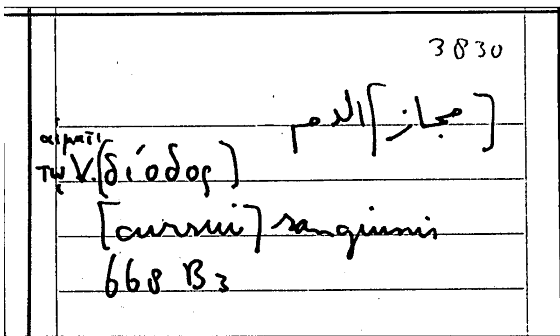 3830
[مجاز] الدم
αἵματι
τῷ V. [δίοδος]
[cursui] sanguinis
668 B 3